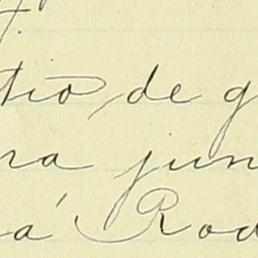 tio, de g
ra jun
a Rod